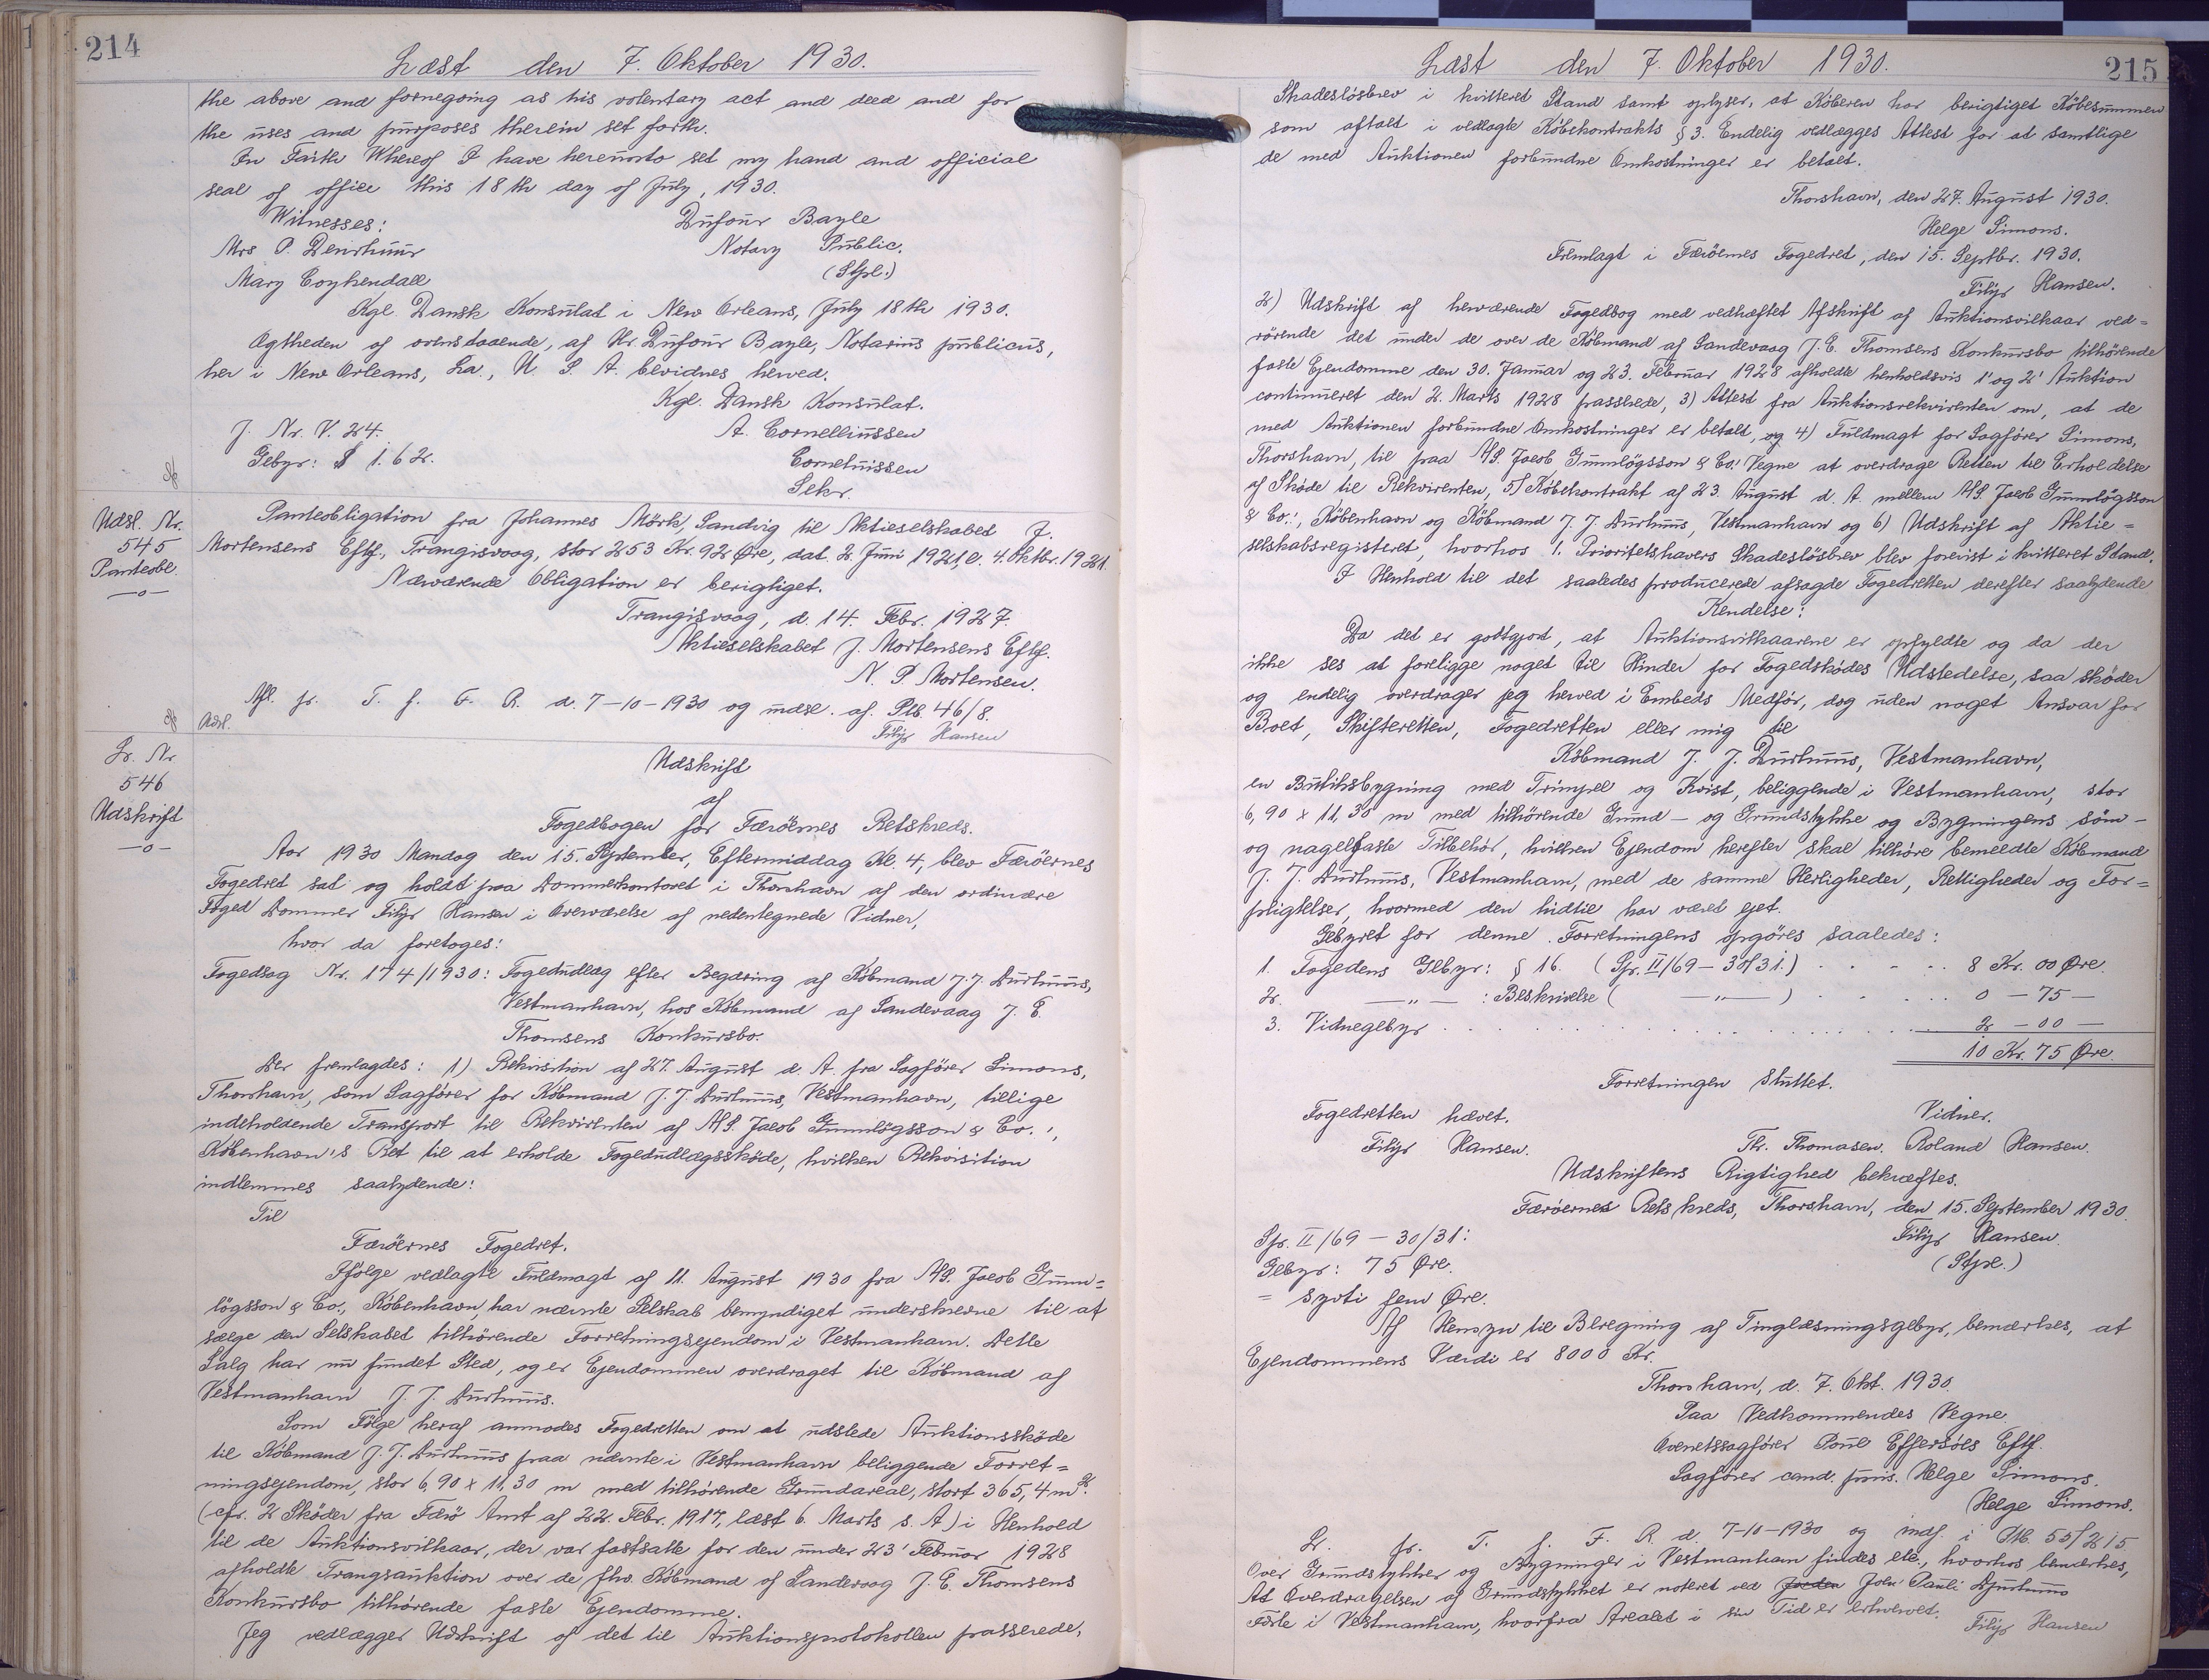 214
Læst den 7. Oktober 1930.
the above and fornegoing as his volentary act and deed and for
the uses and purposes therein set forth.
In Faith Whereof I have hereunto set my hand and official
seal of office this 18th day of July, 1930.
Witnesses: Dufour Bayle
Mrs P. Notary Public.
Mary Coykendall (Stpl.)
Kgl. Dansk Konsulat i New Orleans, July 18th 1930.
Ægtheden af ovenstaaende, af Hr. Dufour Bayle, Notarius publicus,
her i New Orleans, La., U. S. A. bevidnes herved.
Kgl. Dansk Konsulat.
J. Nr. V. 24. A. Cornelliussen
Gebyr: $ 1.62.
Sekr.
Udsl. Nr.
545
Panteobl.
—o—
Panteobligation fra Johannes Mörk, Sandvig til Aktieselskabet J.
Mortensens Eftf., Trangisvaag, stor 253 Kr. 92 Øre, dat. 2. Juni 1921, l. 4. Oktbr. 1921.
Nærværende Obligation er berigtiget.
Trangisvaag, d. 14. Febr. 1927.
Aktieselskabet J. Mortensens Eftf.
N. P. Mortensen.
Afl. pr. T. f. F. R. d. 7-10-1930 og udsl. af. Ptb. 46/8.
Adsl. Filip Hansen
Lr. Nr
546
Udskrift
—o—
Udskrift
af
Fogedbogen for Færöernes Retskreds.
Aar 1930 Mandag den 15. September, Eftermiddag Kl. 4, blev Færöernes
Fogedret sat og holdt paa Dommerkontoret i Thorshavn af den ordinære
Foged Dommer Filip Hansen i Overværelse af nedentegnede Vidner,
hvor da foretoges:
Fogedsag Nr. 174/1930: Fogedudlæg efter Begæring af Köbmand J. J. Durhuus,
Vestmanhavn, hos Köbmand af Sandevaag J. E.
Thomsens Konkursbo.
Der fremlagdes: 1) Rekvisition af 27. August d. A. fra Sagförer Simons,
Thorshavn, som Sagförer for Köbmand J. J. Durhuus, Vestmanhavn, tillige
indeholdende Transport til Rekvirenten af A/S. Jacob Gunnlögsson & Co.',
København's Ret til at erholde Fogedudlægsskøde, hvilken Rekvisition
indlemmes saalydende:
Til
Færöernes Fogedret.
Ifölge vedlagte Fuldmagt af 11. August 1930 fra A/S. Jacob Gunn=
lögsson & Co., København, har nævnte Selskab bemyndiget underskrevne til at
sælge den Selskabet tilhörende Forretningsejendom i Vestmanhavn. Dette
Salg har nu fundet Sted, og er Ejendommen overdraget til Köbmand af
Vestmanhavn J. J. Durhuus.
Som Fölge heraf anmodes Fogedretten om at udstede Auktionsskøde
til Köbmand J. J. Durhuus paa nævnte i Vestmanhavn beliggende Forret=
ningsejendom, stor 6,90 x 11,30 m med tilhörende Grundareal, stort 365,4 m².
(cfr. 2 Sköder fra Færö Amt af 22. Febr. 1917, læst 6. Marts s. A.) i Henhold
til de Auktionsvilkaar, der var fastsatte for den under 23' Februar 1928
afholdte Tvangsauktion over de fhv. Köbmand af Sandevaag J. E. Thomsens
Konkursbo tilhörende faste Ejendomme.
Jeg vedlægger Udskrift af det til Auktionsprotokollen passerede,
215
Læst den 7. Oktober 1930.
Skadeslösbrev i kvitteret Stand samt oplyser, at Köberen har berigtiget Köbesummen
som aftalt i vedlagte Köbekontrakts § 3. Endelig vedlægges Attest for at samtlige
de med Auktionen forbundne Omkostninger er betalt.
Thorshavn, den 27. August 1930.
Helge Simons.
Fremlagt i Færöernes Fogedret, den 15. Septbr. 1930.
Filip Hansen.
2) Udskrift af herværende Fogedbog med vedhæftet Afskrift af Auktionsvilkaar ved=
rörende det under de over de Köbmand af Sandevaag J. E. Thomsens Konkursbo tilhörende
faste Ejendomme den 30. Januar og 23. Februar 1928 afholdte henholdsvis 1' og 2' Auktion
continueret den 2. Marts 1928 passerede, 3) Attest fra Auktionsrekvirenten om, at de
med Auktionen forbundne Omkostninger er betalt, og 4) Fuldmagt for Sagförer Simons,
Thorshavn, til paa A/S. Jacob Gunnlögsson & Co.' Vegne at overdrage Retten til Erholdelse
af Sköde til Rekvirenten, 5) Köbekontrakt af 23. August d. A. mellem A/S. Jacob Gunnlögsson
& Co.', København og Köbmand J. J. Durhuus, Vestmanhavn og 6) Udskrift af Aktie=
selskabsregisteret, hvorhos 1. Prioritetshavers Skadeslösbrev blev forevist i kvitteret Stand.
I Henhold til det saaledes producerede afsagde Fogedretten derefter saalydende
Kendelse:
Da det er godtgjort, at Auktionsvilkaarene er opfyldte og da der
ikke ses at foreligge noget til Hinder for Fogedskødes Udstedelse, saa sköder
og endelig overdrager jeg herved i Embeds Medför, dog uden noget Ansvar for
Boet, Skifteretten, Fogedretten eller mig til
Köbmand J. J. Durhuus, Vestmanhavn,
en Butiksbygning med Trimpel og Kvist, beliggende i Vestmanhavn, stor
6,90 x 11,30 m med tilhörende Grund — og Grundstykke og Bygningens söm—
og nagelfaste Tilbehör, hvilken Ejendom herefter skal tilhöre bemeldte Köbmand
J. J. Durhuus, Vestmanhavn, med de samme Herligheder, Rettigheder og For=
pligtelser, hvormed den hidtil har været ejet.
Gebyret for denne Forretningens opgöres saaledes:
1. Fogedens Gebyr: § 16. (Spr. II/69 — 30/31.) . . . . 8 Kr. 00 Øre.
2. —„— : Beskrivelse ( —„— ) . . . . 0 — 75 —
3. Vidnegebyr . . . . 2 — 00 —
10 Kr. 75 Øre.
Forretningen sluttet.
Fogedretten hævet. Vidner.
Filip Hansen. Thr. Thomasen. Roland Hansen.
Udskriftens Rigtighed bekræftes.
Færöernes Retskreds, Thorshavn, den 15. September 1930.
Spr. II/69 — 30/31: Filip Hansen.
Gebyr: 75 Øre. (Stpl.)
= syvti fem Øre.
Af Hensyn til Beregning af Tinglæsningsgebyr, bemærkes, at
Ejendommens Værdi er 8000 Kr.
Thorshavn, d. 7. Okt. 1930.
Paa Vedkommendes Vegne.
Overretssagförer Poul Effersöes Eftf.
Sagförer cand. juris. Helge Simons.
Helge Simons.
Lr. pr. T. f. F. R. d. 7-10-1930 og indf. i Ptb. 55/215
Over Grundstykker og Bygninger i Vestmanhavn findes etc., hvorhos bemærkes,
At Overdragelsen af Grundstykket er noteret ved Joen Pauli Djurhuus
Fæste i Vestmanhavn, hvorfra Arealet i sin Tid er erhvervet.
Filip Hansen